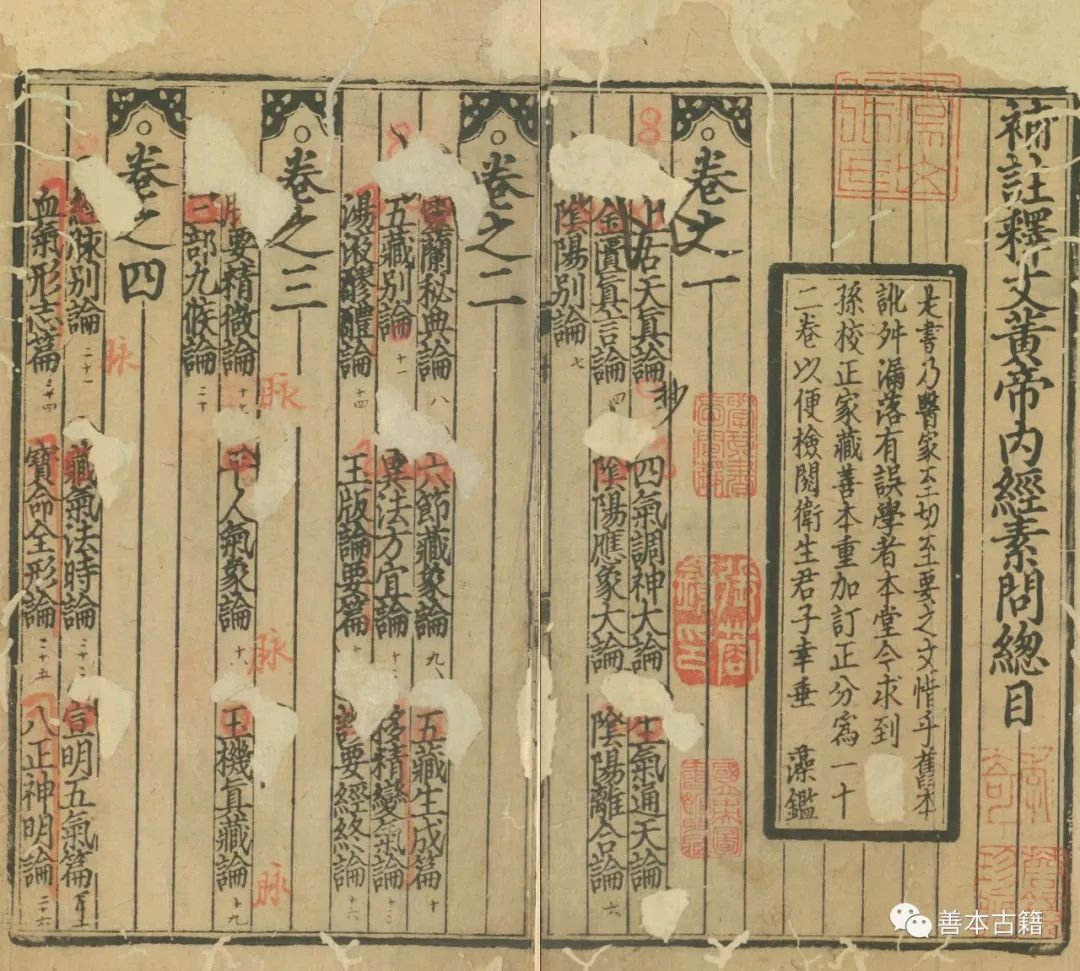 補註釋文黃帝內經素問總目
是書乃醫家至切至要之文惜乎舊本
訛舛漏落有誤學者本堂今求到
孫校正家藏善本重加訂正分爲一十
二卷以便檢閱衛生君子幸垂 藻鑑
卷之一
上古天真論 四氣調神大論 生氣通天論
金匱真言論 四 陰陽應象大論 陰陽離合論 六
陰陽別論 七
卷之二
蘭秘典論 八 六節藏象論 九 五藏生成篇 十
五藏別論 十一 異法方宜論 移精變氣論 十三
湯液醪醴論 十四 玉版論要篇 要經終論 十六
卷之三
要精微論 十七 平人氣象論 十八 玉機真藏論 十九
三部九候論 二十
卷之四
經脉別論 二十一 藏氣法時論 二十二 宣明五氣篇
血氣形志篇 二十四 寶命全形論 二十五 八正神明論 二十六
脉
脉
脉
脉
善本古籍